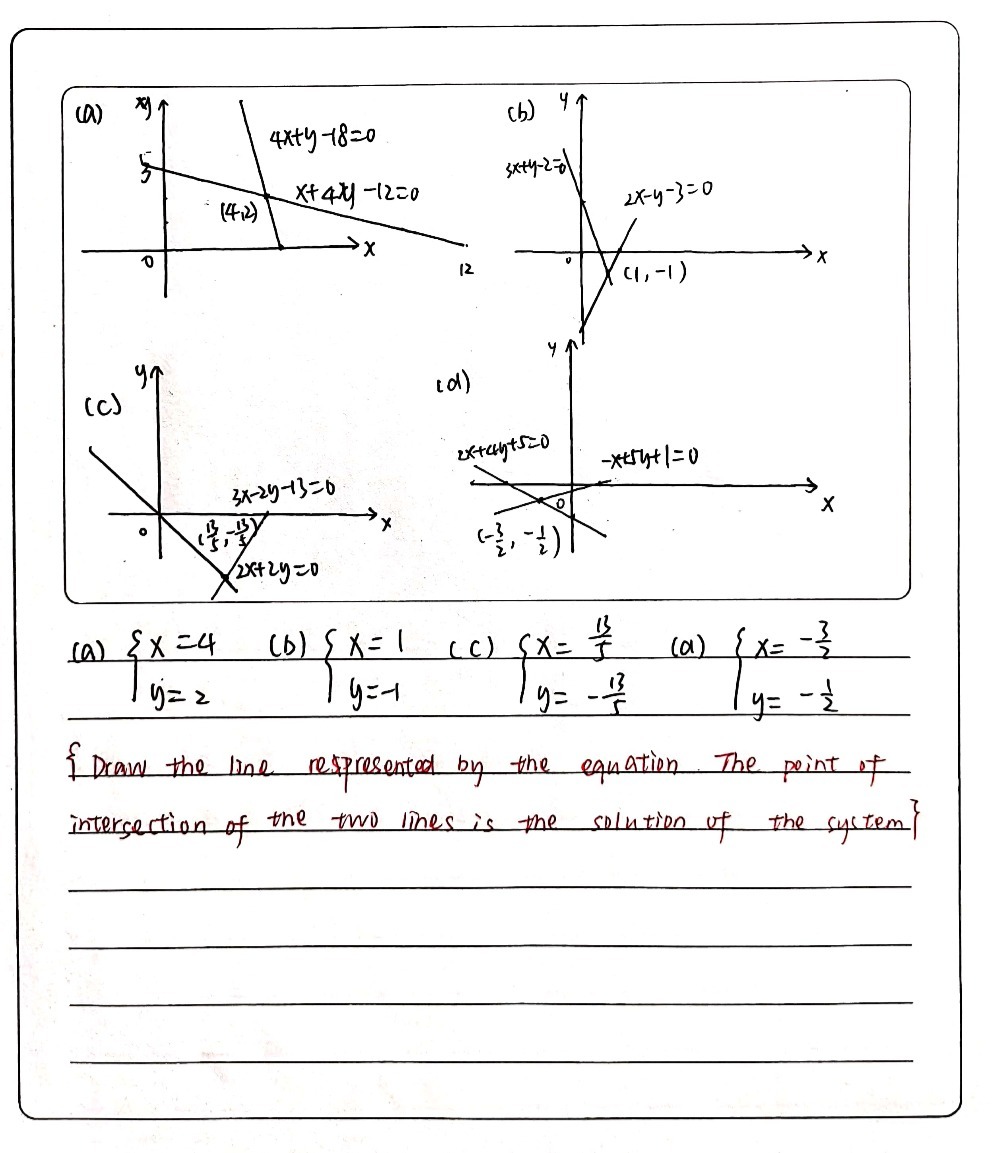 (a) y
4x+y-18=0
x+4y-12=0
(4,2)
0 x
12
(b) y
3x+y-2=0
2x-y-3=0
0 x
(1,-1)
(c) y
3x-2y-13=0
0 x
(13/5,-13/5)
2x+2y=0
(d) y
2x+4y+5=0
-x+5y+1=0
0 x
(-3/2, -1/2)
(a) {x=4 (b) {x=1 (c) {x=13/5 (d) {x=-3/2
y=2 y=-1 y=-13/5 y=-1/2
{Draw the line respresented by the equation. The point of
intersection of the two lines is the solution of the system}